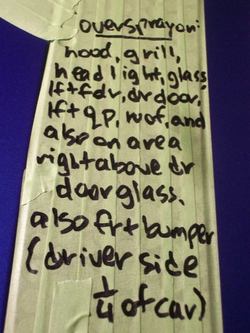 overspray on:
hood, grill,
headlight, glass,
lft fdr, dr door,
lft qp, roof, and
also on area
right above dr
door glass.
also frt bumper
(driver side
1/4 of car)